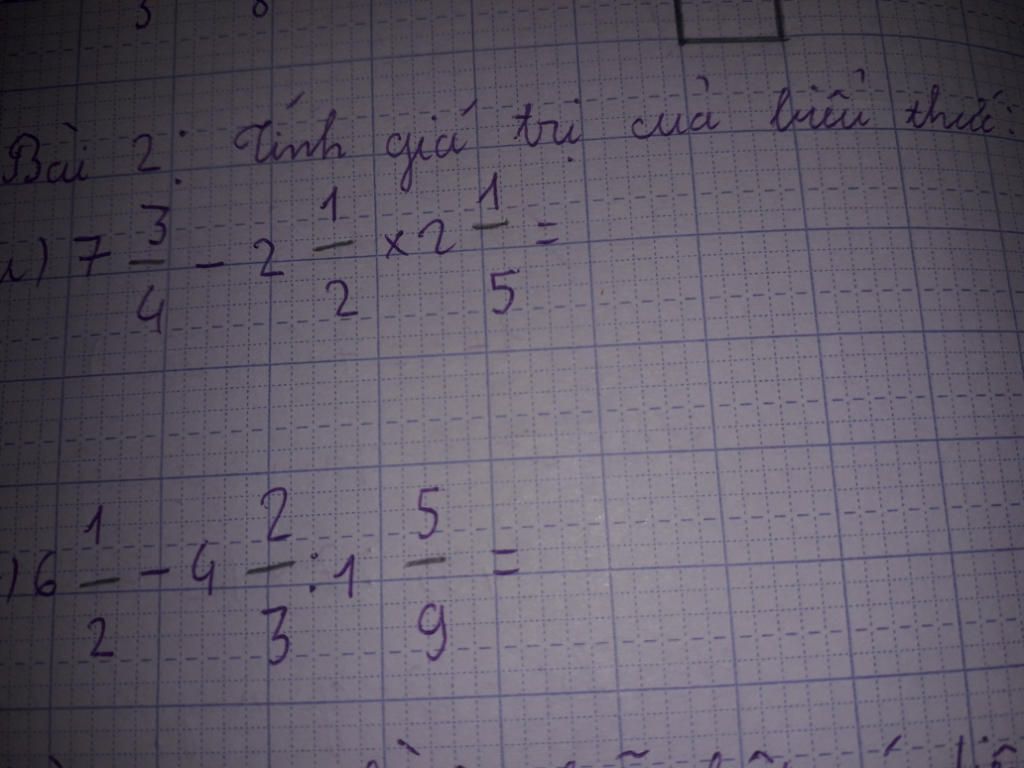 Bài 2: Tính giá trị của biểu thức:
a) 7 3/4 - 2 1/2 × 2 1/5 =
) 6 1/2 - 4 2/3 : 1 5/9 =